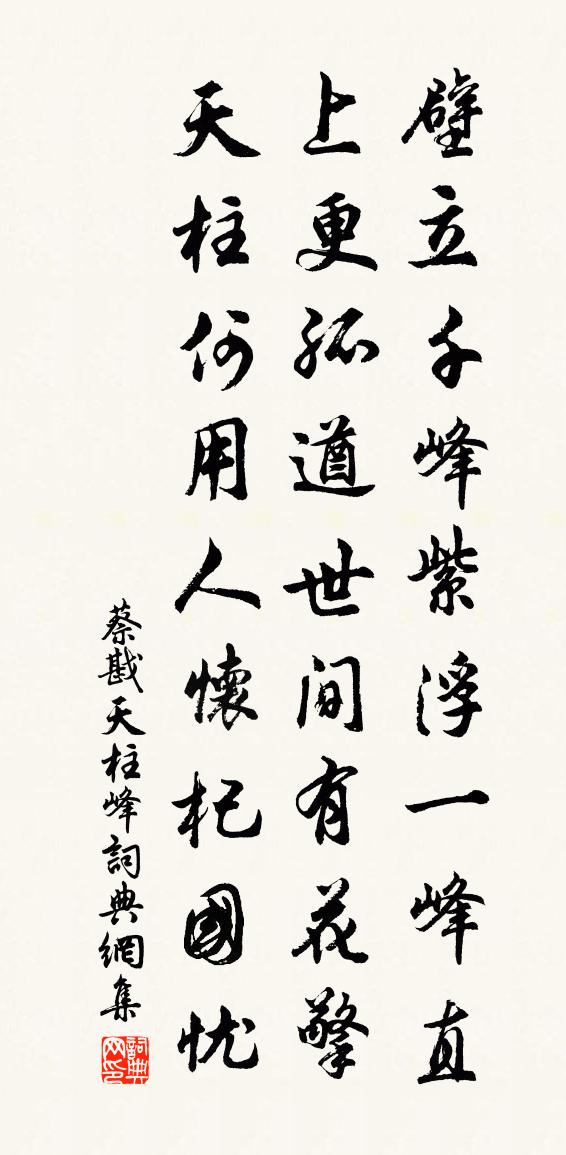 壁立千峰紫浮一峰直
上更孤遒世间有花擎
天柱何用人懷杞國忧
蔡戡天柱峰詞典網集
詞典网印